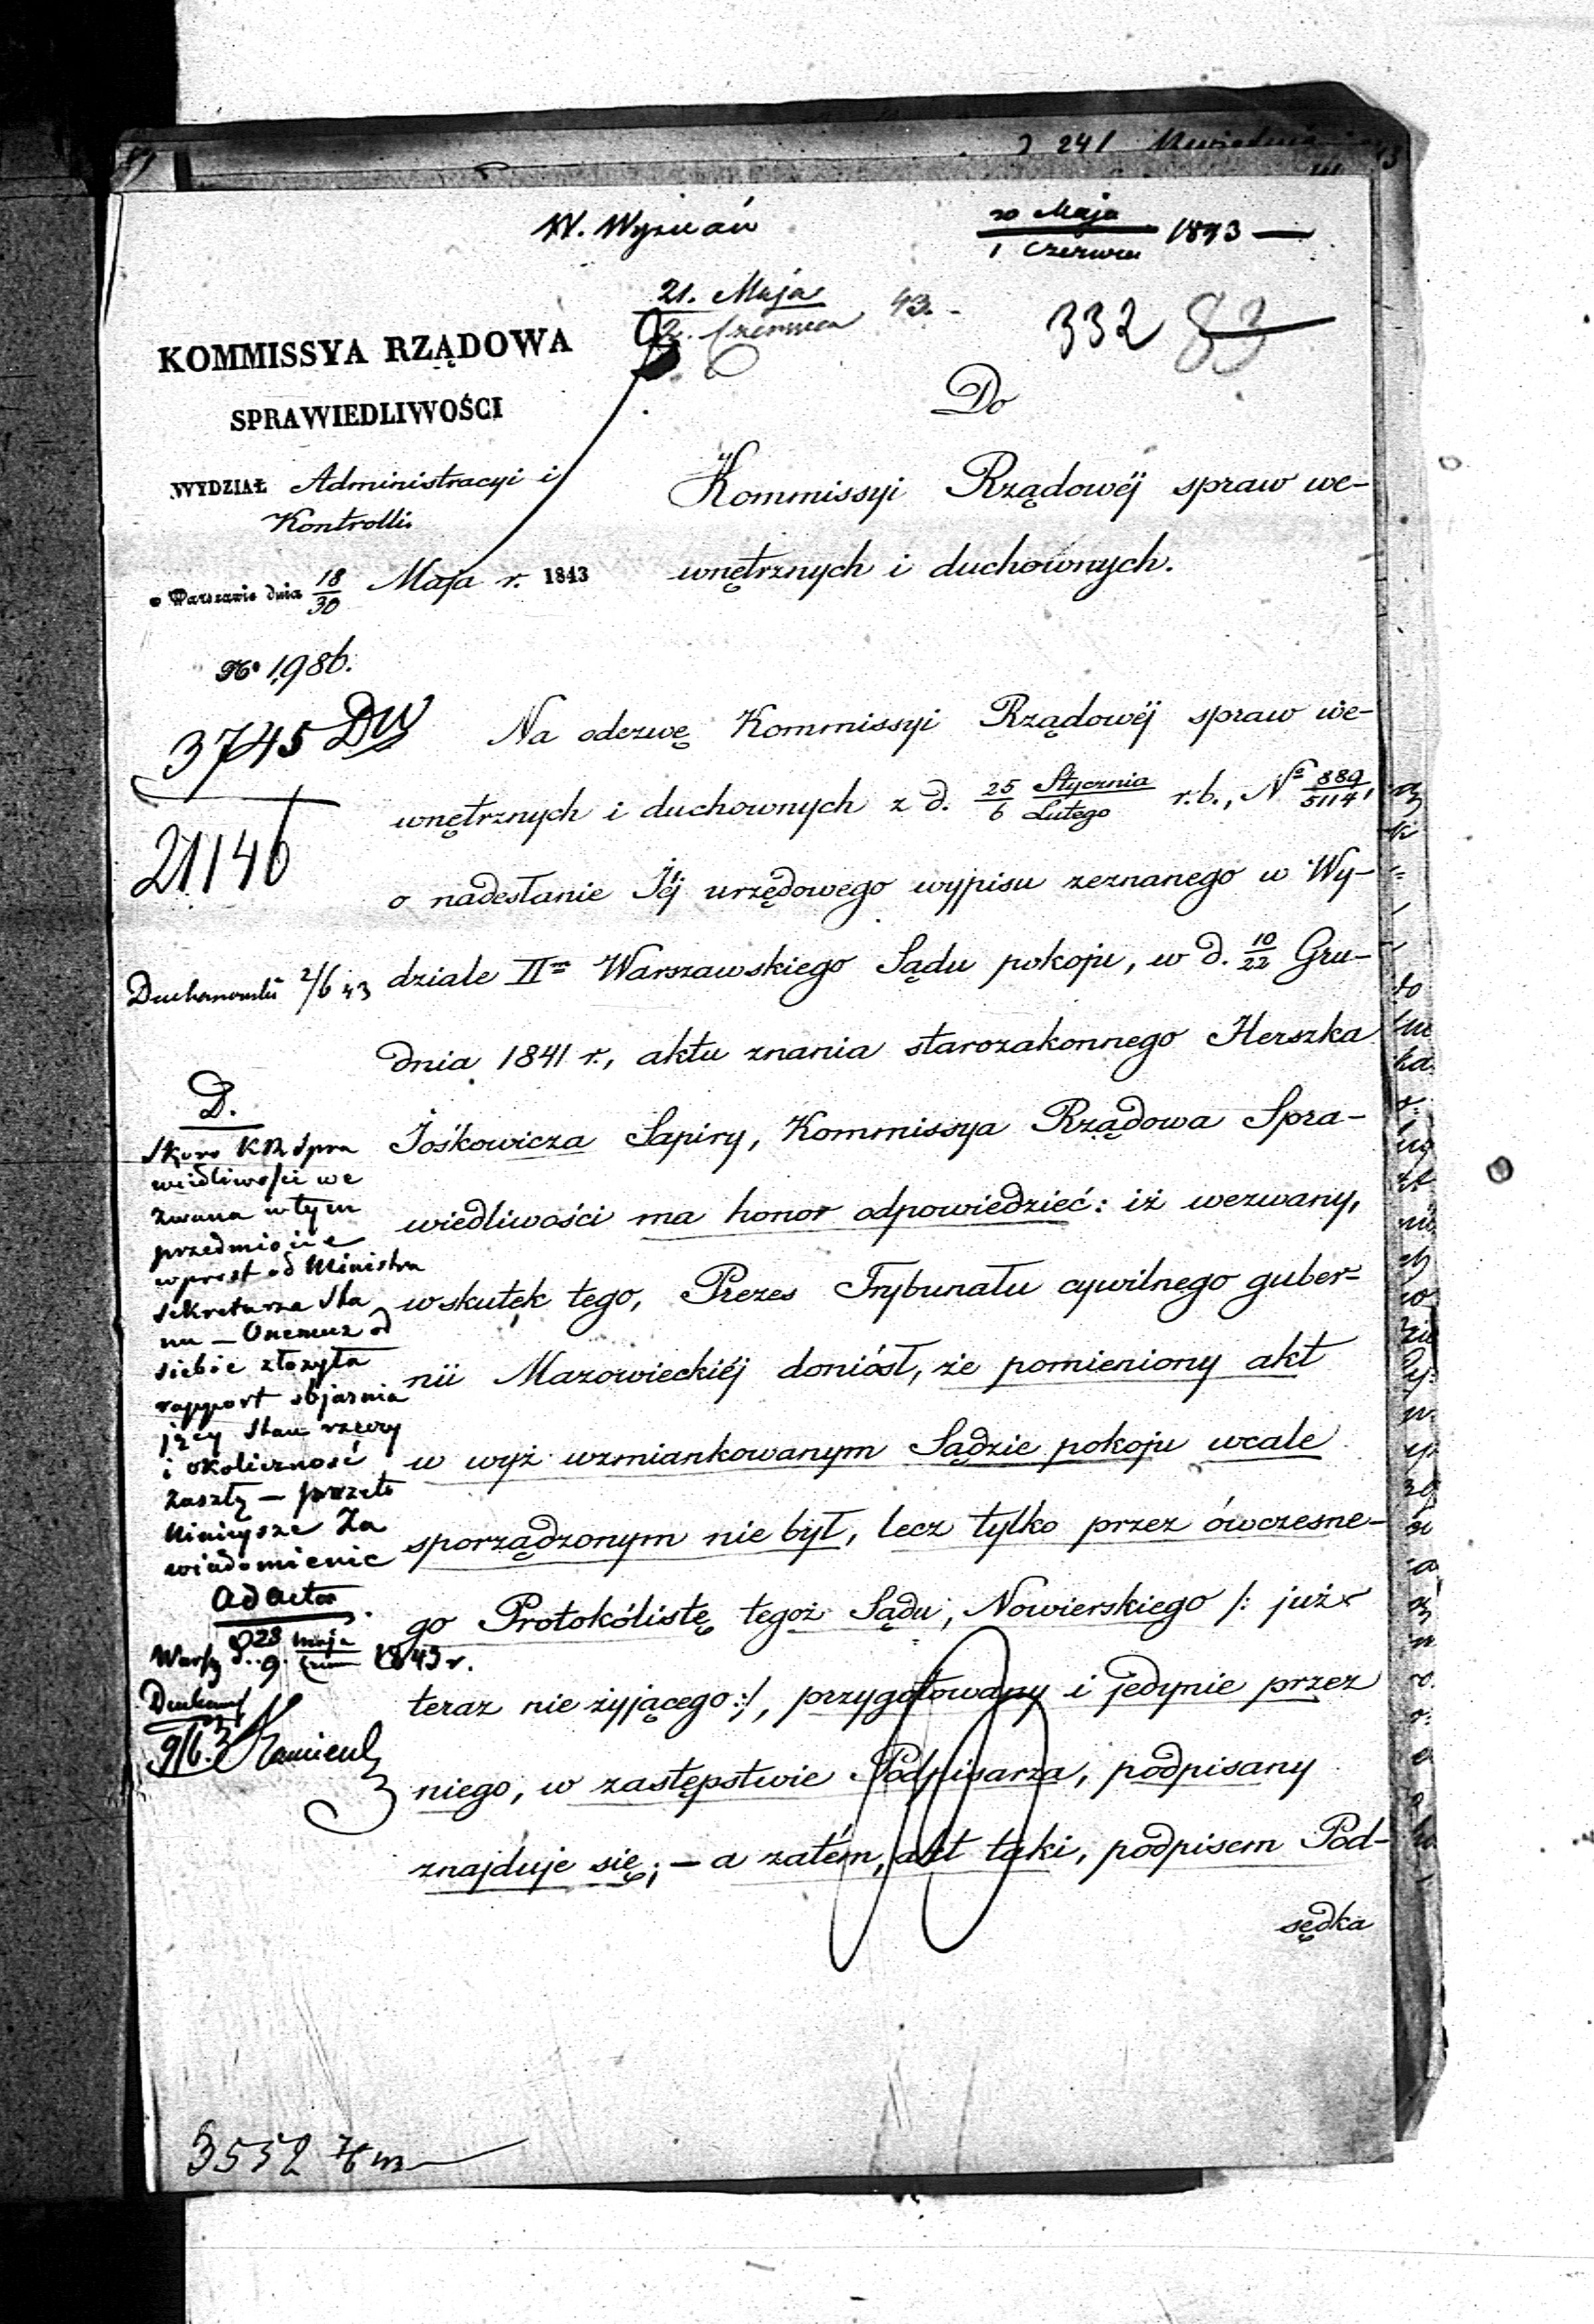 W. Wyznań
20 Maja
1 Czerwca 1843
21. Maja
2. Czerwca 43.
332 83
KOMMISSYA RZĄDOWA
SPRAWIEDLIWOŚCI
WYDZIAŁ Administracyi i
Kontrolli.
w Warszawie dnia 18/30 Maja r. 1843
No 1986.
3745 DW
21146
Do
Kommissyi Rządowéj spraw we-
wnętrznych i duchownych.
Na odezwę Kommissyi Rządowéj spraw we-
wnętrznych i duchownych z d. 25 Stycznia / 6 Lutego r. b., No 889/5114,
o nadesłanie Jéj urzędowego wypisu zeznanego w Wy-
dziale IIm Warszawskiego Sądu pokoju, w d. 10/22 Gru-
dnia 1841 r., aktu znania starozakonnego Herszka
Jośkowicza Sapiry, Kommissya Rządowa Spra-
wiedliwości ma honor odpowiedzieć: iż wezwany,
wskutek tego, Prezes Trybunału cywilnego guber-
nii Mazowieckiéj doniósł, że pomieniony akt
w wyż wzmiankowanym Sądzie pokoju wcale
sporządzonym nie był, lecz tylko przez ówczesne-
go Protokólistę tegoż Sądu, Nowierskiego /: już
teraz nie żyjącego :/, przygotowany i jedynie przez
niego, w zastępstwie Podpisarza, podpisany
znajduje się; — a zatém, akt taki, podpisem Pod-
sędka
2/6 43
D.
Skoro KR Spra
wiedliwości we
zwana w tym
przedmiocie
wprost od Ministra
Sekretarza Sta
nu — Onemuz od
siebie złożyła
rapport objaśnia
jący Stan rzeczy
i okoliczność
zaszłą — przeto
niniejsze za
wiadomienie
ad acta
Warsz d. 28 maja / 9 Czerw 1843 r.
9/6.
3552